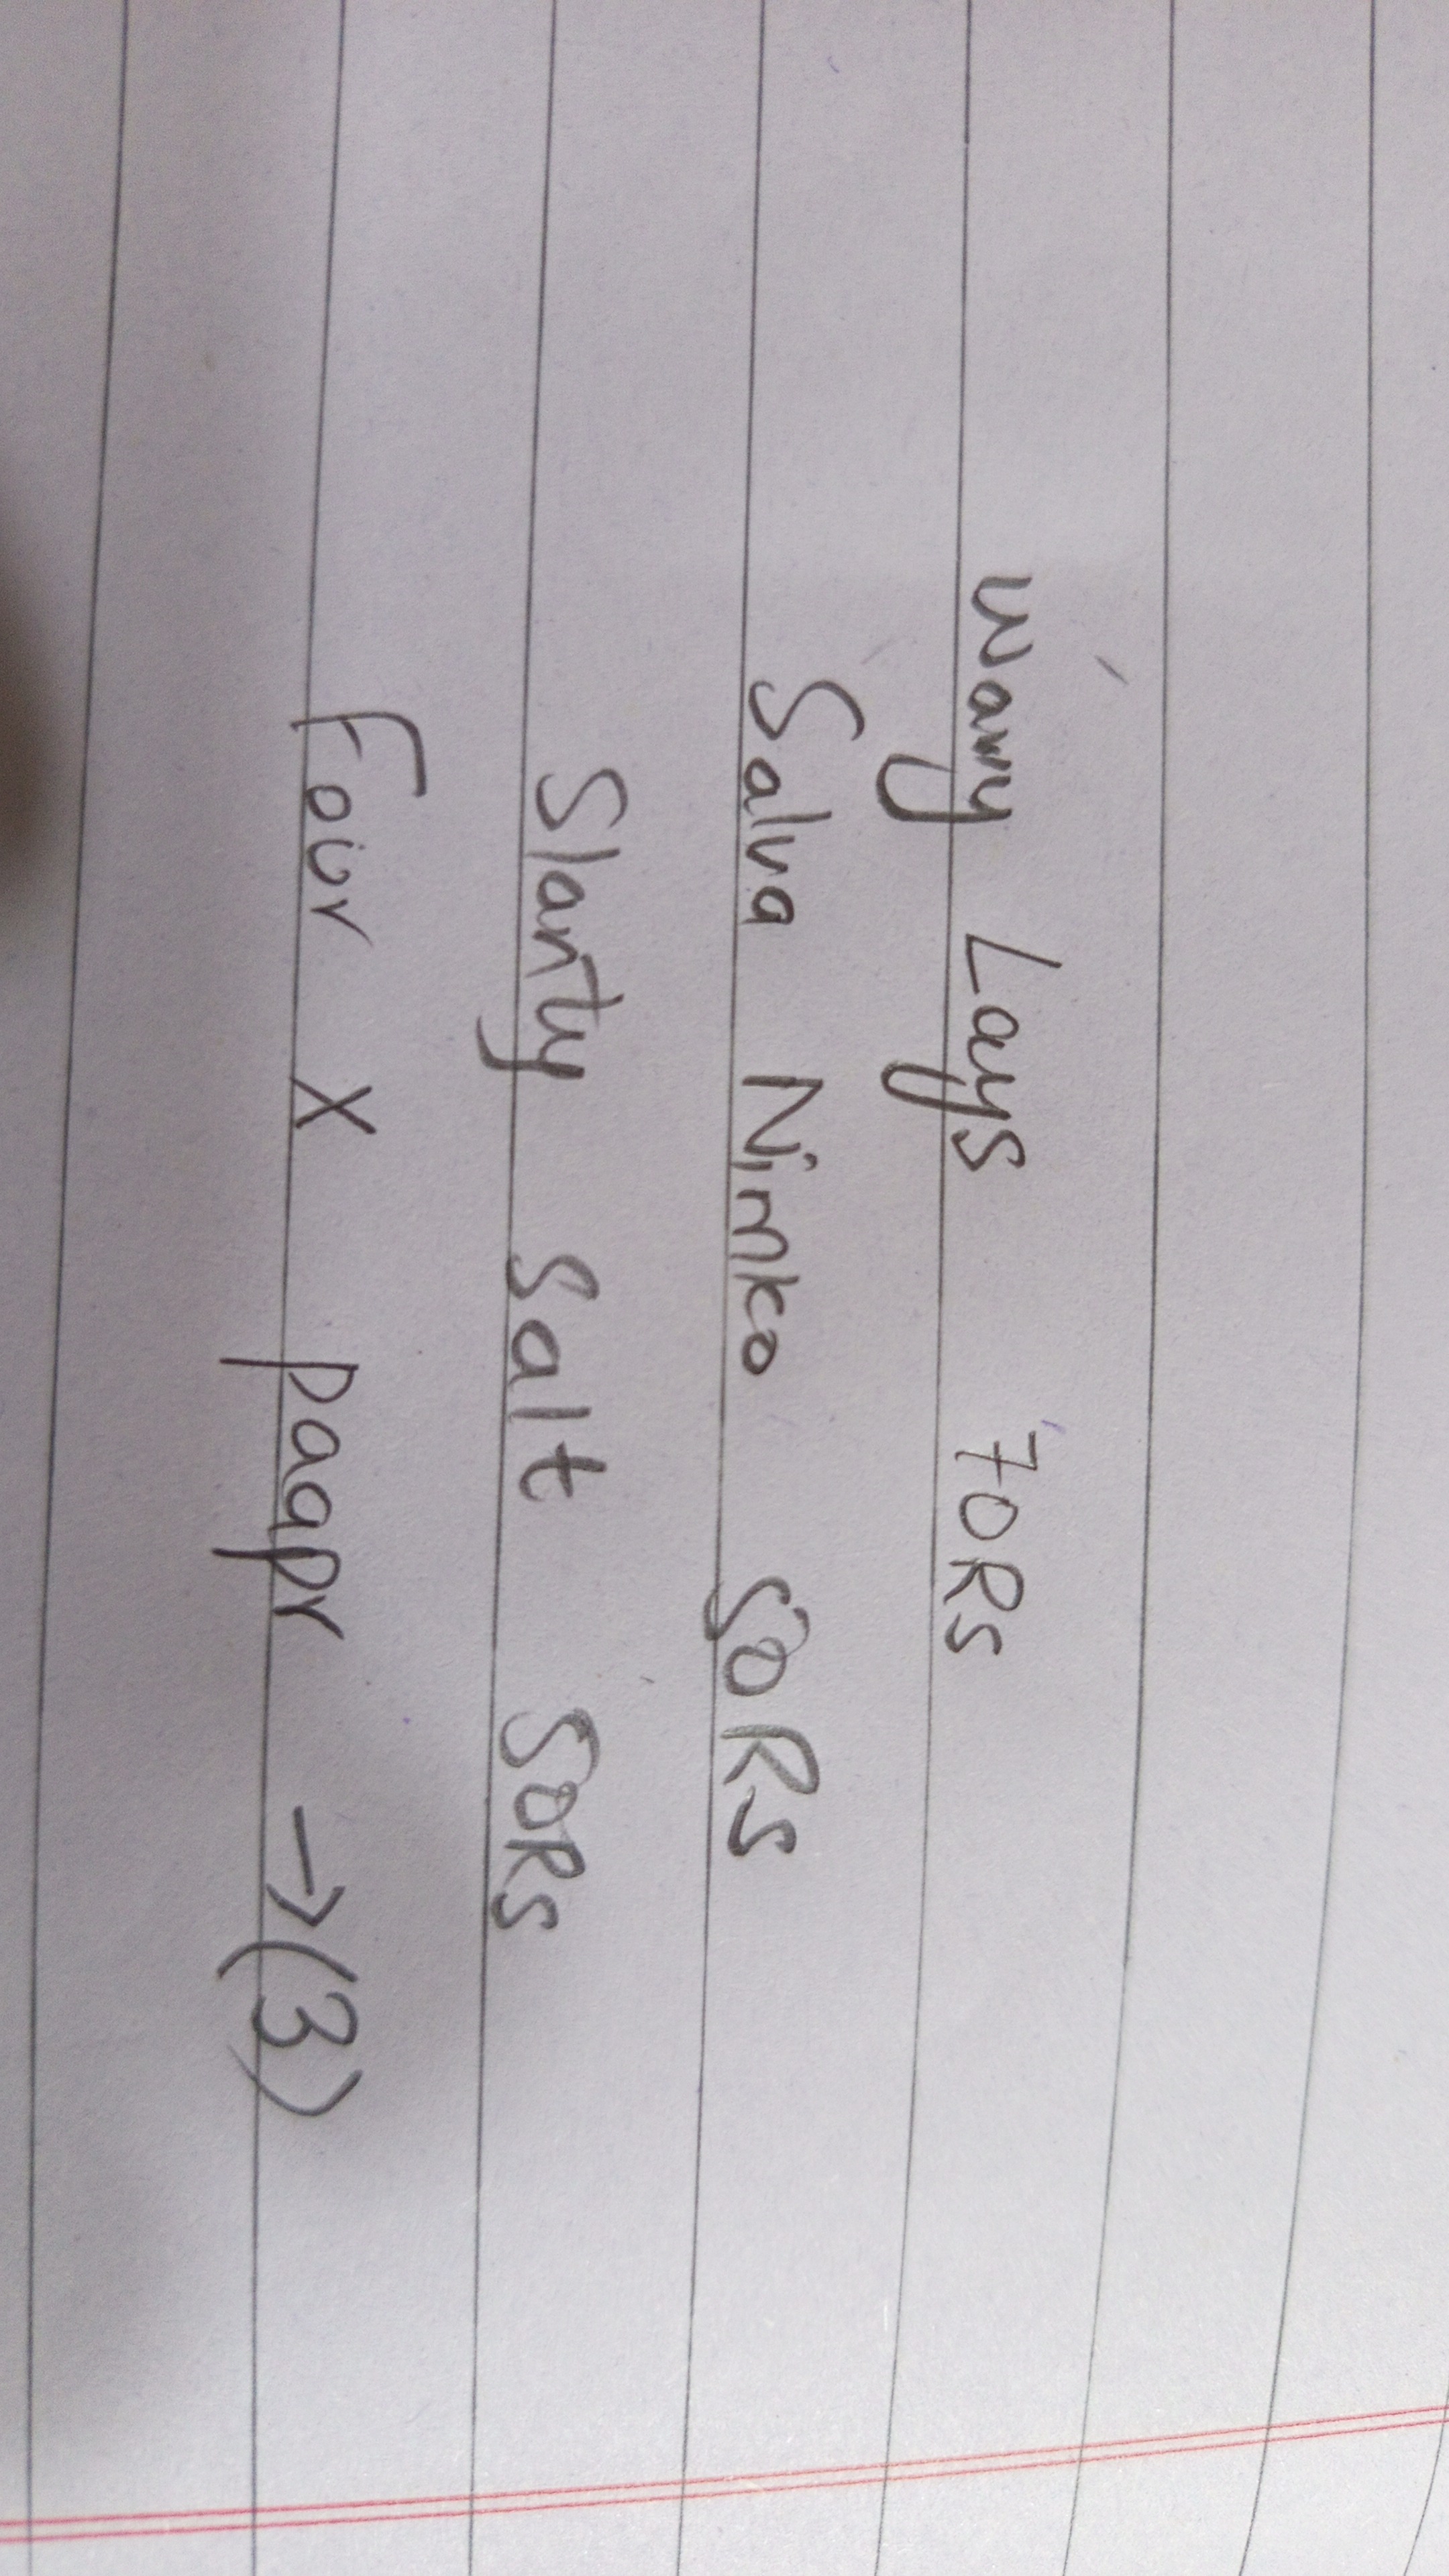 wavy Lays 70Rs
Salva Nimko 50Rs
Slanty Salt 50Rs
Four X paapr → (3)